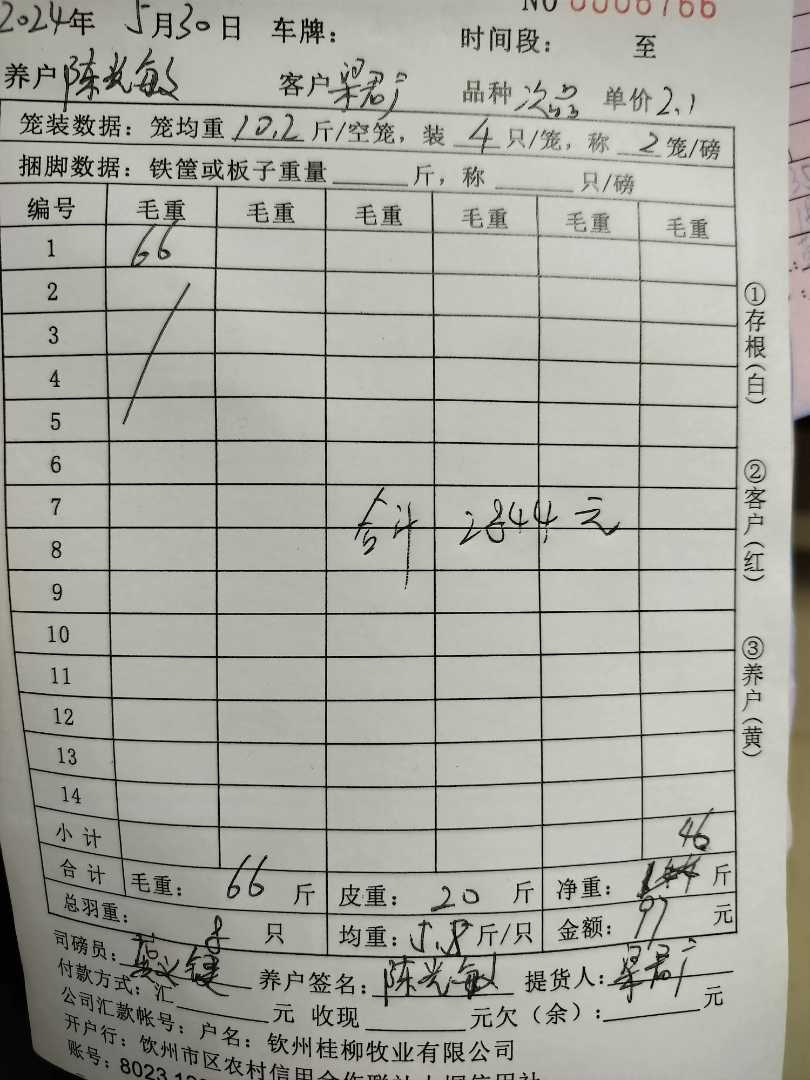 NO 0006766
2024年 5月30日 车牌： 时间段： 至
养户 陈光敏 客户 梁君广 品种 次品 单价 2.1
笼装数据：笼均重 10.2 斤/空笼，装 4 只/笼，称 2 笼/磅
捆脚数据：铁筐或板子重量 斤，称 只/磅
编号 毛重 毛重 毛重 毛重 毛重 毛重
1 66
2
3
4
5
6
7
合计 2844元
8
9
10
11
12
13
14
小计
合计 毛重： 66 斤 皮重： 20 斤 净重： 46 斤
总羽重： 8 只 均重： 5.8 斤/只 金额： 97 元
司磅员： 养户签名： 陈光敏 提货人： 梁君广
付款方式：汇 元 收现 元欠（余）： 元
公司汇款帐号：户名：钦州桂柳牧业有限公司
开户行：钦州市区农村信用合作联社
账号：8023
①存根（白）
②客户（红）
③养户（黄）